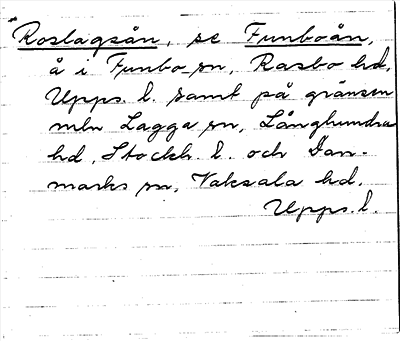 Roslagsån, se Funboån,
å i Funbo sn, Rasbo hd,
Upps. l. samt på gränsen
mln Lagga sn, Långhundra
hd, Stockh. l. och Dan-
marks sn, Vaksala hd.
Upps. l.